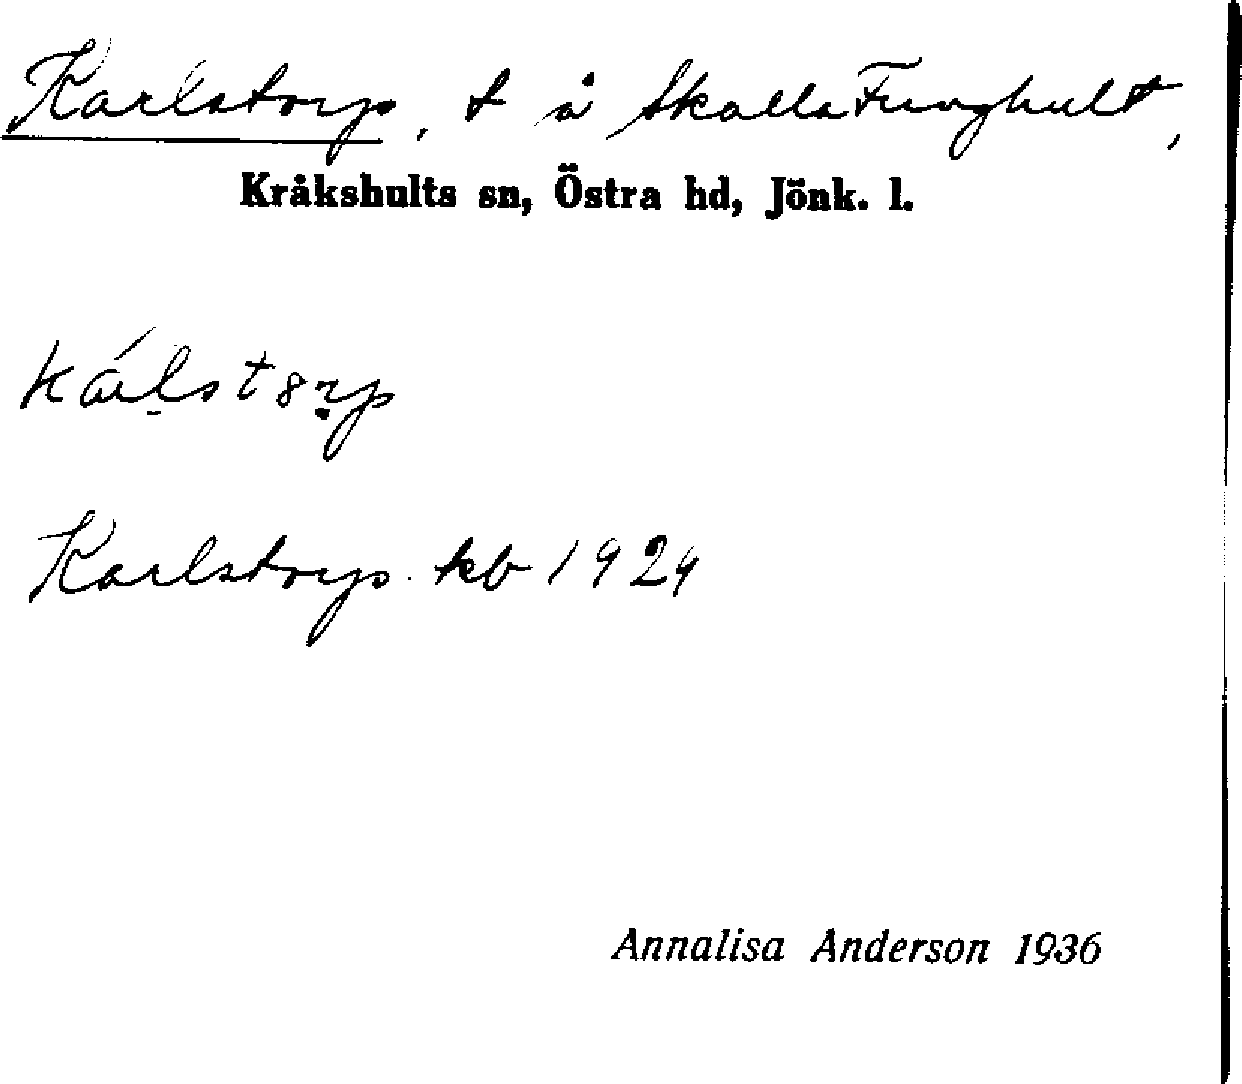 Karlstorp, t å Skalla Funghult,
Kråkshults sn, Östra hd, Jönk. l.
Karlstorp. kb 1929
Annalisa Anderson 1936